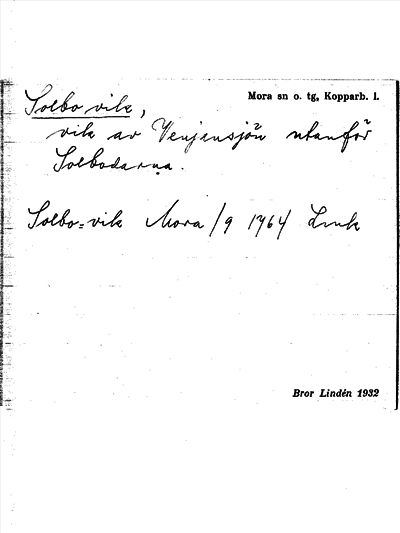 Solbo vik, Mora sn o. tg, Kopparb. l.
vik av Venjansjön utanför
Solbodarna.
Solbo=vik Mora /9 1764 Lmk
Bror Lindén 1932